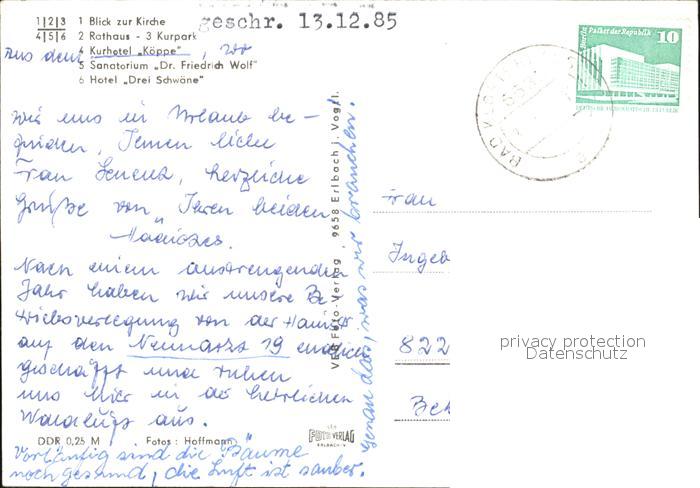 geschr. 13.12.85
1|2|3 1 Blick zur Kirche
4|5|6 2 Rathaus - 3 Kurpark
4 Kurhotel „Köppe"
5 Sanatorium „Dr. Friedrich Wolf"
6 Hotel „Drei Schwäne"
Aus dem , wo
wir uns im Urlaub be-
finden, Ihnen liebe
Frau herzliche
Grüße von Ihren beiden
Nach einem anstrengenden
Jahr haben wir unsere Be
triebsverlegung von der
auf den Neumarkt 19 endlich
geschafft und ruhen
uns hier in der herrlichen
Waldluft aus.
Vorläufig sind die Bäume
noch gesund, die Luft ist sauber.
Genau das, was wir brauchen.
DDR 0,25 M Fotos: Hoffmann
VEB Foto-Verlag, 9658 Erlbach i. Vogtl.
FOTO VERLAG
ERLBACH-V
Berlin Palast der Republik
10
DEUTSCHE DEMOKRATISCHE REPUBLIK
BAD
Frau
Ingeb
822
privacy protection
Datenschutz